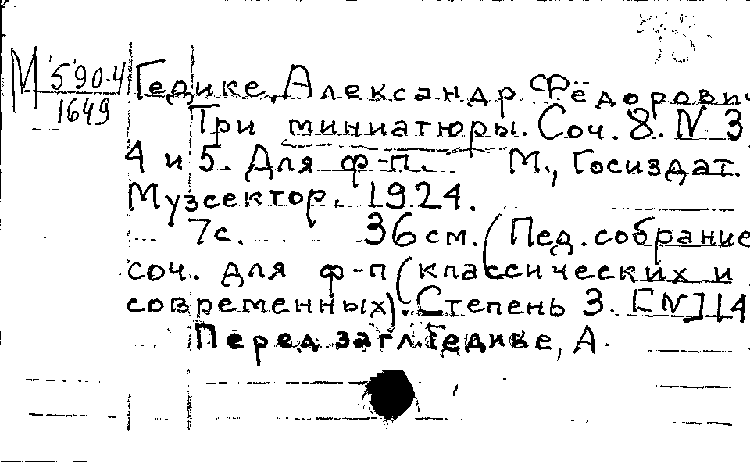 М 590-4
1649
Гедике, Александр Фёдорович
Три миниатюры. Соч. 8. N 3,
4 и 5. Для ф-п. М., Госиздат.
Музсектор. 1924.
7с. 36см. (Пед. собрание
соч. для ф-п (классических и
современных). Степень 3. [N] 14
Перед загл. Гедике, А.